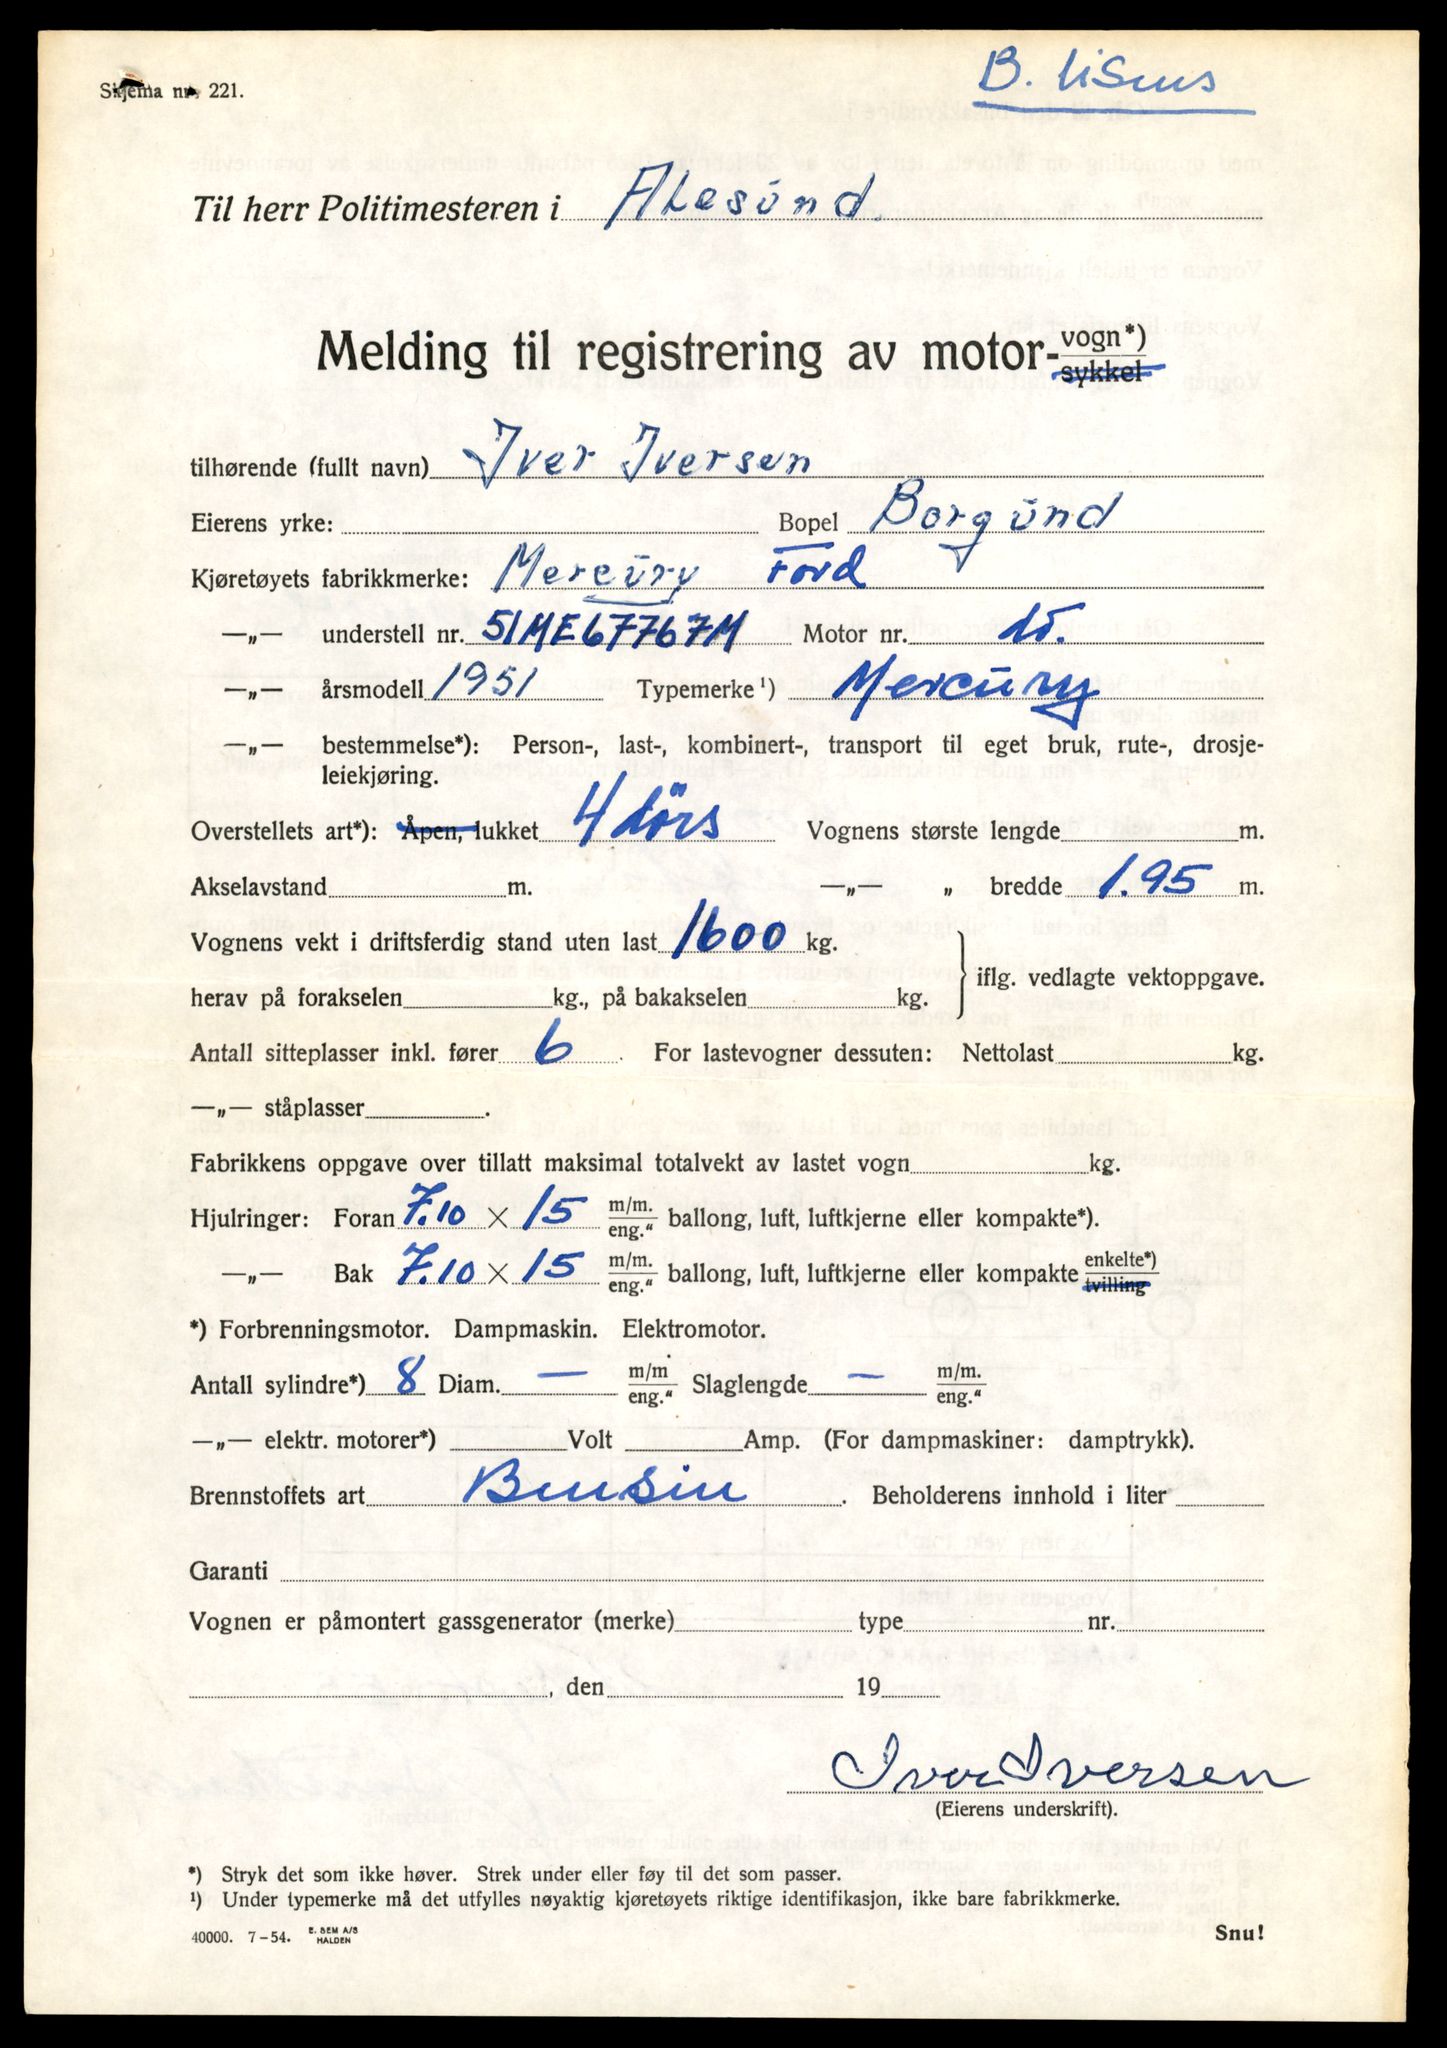 Skjema nr. 221.
B. lisens
Til herr Politimesteren i Alesund.
Melding til registrering av motor-vogn*)
sykkel
tilhørende (fullt navn) Iver Iversen
Eierens yrke: Bopel Borgund
Kjøretøyets fabrikkmerke: Mercury Ford
—„— understell nr. 51ME67767M Motor nr. do.
—„— årsmodell 1951 Typemerke¹) Mercury
—„— bestemmelse*): Person-, last-, kombinert-, transport til eget bruk, rute-, drosje-
leiekjøring.
Overstellets art*): Åpen, lukket 4 dörs Vognens største lengde m.
Akselavstand m. —„— „ bredde 1.95 m.
Vognens vekt i driftsferdig stand uten last 1600 kg.
iflg. vedlagte vektoppgave.
herav på forakselen kg., på bakakselen kg.
Antall sitteplasser inkl. fører 6. For lastevogner dessuten: Nettolast kg.
—„— ståplasser .
Fabrikkens oppgave over tillatt maksimal totalvekt av lastet vogn kg.
Hjulringer: Foran 7.10 × 15 m/m. eng.“ ballong, luft, luftkjerne eller kompakte*).
—„— Bak 7.10 × 15 m/m. eng.“ ballong, luft, luftkjerne eller kompakte enkelte*) tvilling
*) Forbrenningsmotor. Dampmaskin. Elektromotor.
Antall sylindre*) 8 Diam. — m/m eng.“ Slaglengde — m/m. eng.“
—„— elektr. motorer*) Volt Amp. (For dampmaskiner: damptrykk).
Brennstoffets art Bensin . Beholderens innhold i liter
Garanti
Vognen er påmontert gassgenerator (merke) type nr.
, den 19
Iver Iversen
(Eierens underskrift).
*) Stryk det som ikke høver. Strek under eller føy til det som passer.
¹) Under typemerke må det utfylles nøyaktig kjøretøyets riktige identifikasjon, ikke bare fabrikkmerke.
40000. 7–54. E. SEM A/S HALDEN
Snu!